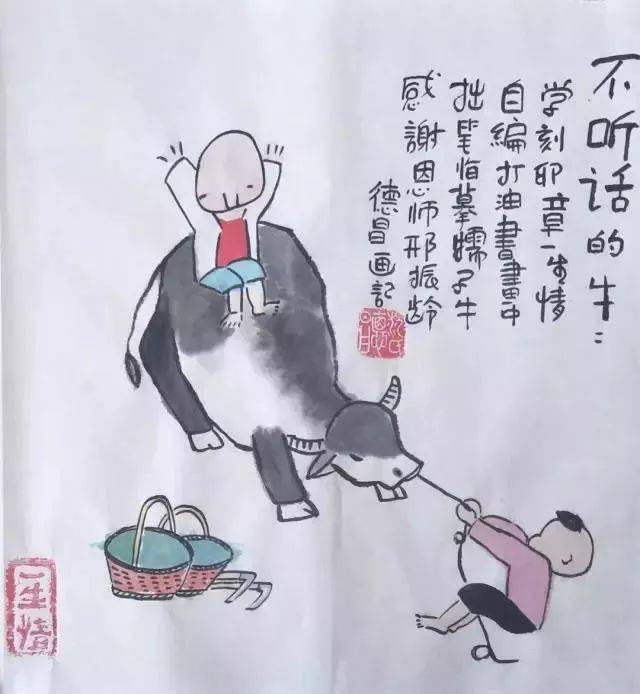 不听话的牛：
学刻印章一生情
自编打油書畫中
拙笔临摹孺子牛
感謝恩师邢振龄
德昌画记
一生情